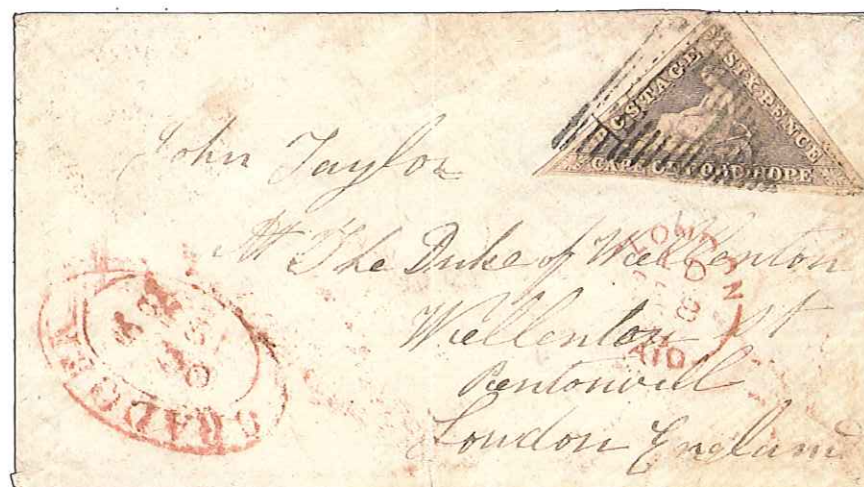 POSTAGE SIX PENCE
CAPE OF GOOD HOPE
John Taylor
At The Duke of Wellenton
Wellenton St
Pentonvill
London England
LONDON
PAID
CRADOCK